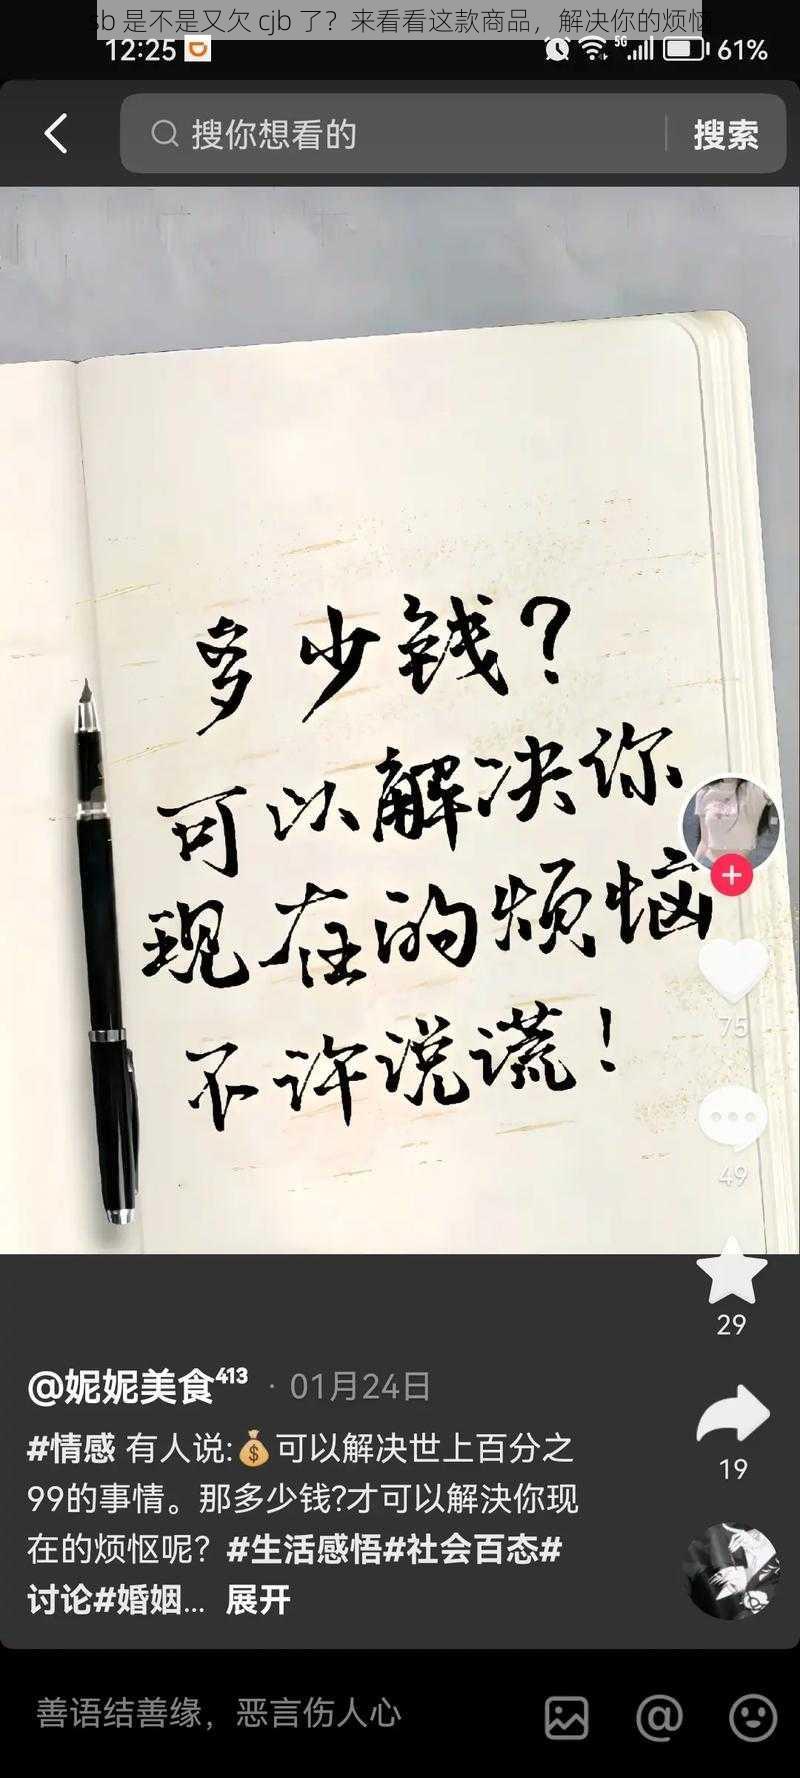 sb 是不是又欠 cjb 了？来看看这款商品，解决你的烦恼
12:25
5G
61%
搜你想看的
搜索
多少钱？
可以解决你
现在的烦恼
不许说谎！
75
49
29
19
@妮妮美食⁴¹³ · 01月24日
#情感 有人说:💰可以解决世上百分之
99的事情。那多少钱?才可以解決你现
在的烦怄呢？#生活感悟#社会百态#
讨论#婚姻... 展开
善语结善缘，恶言伤人心